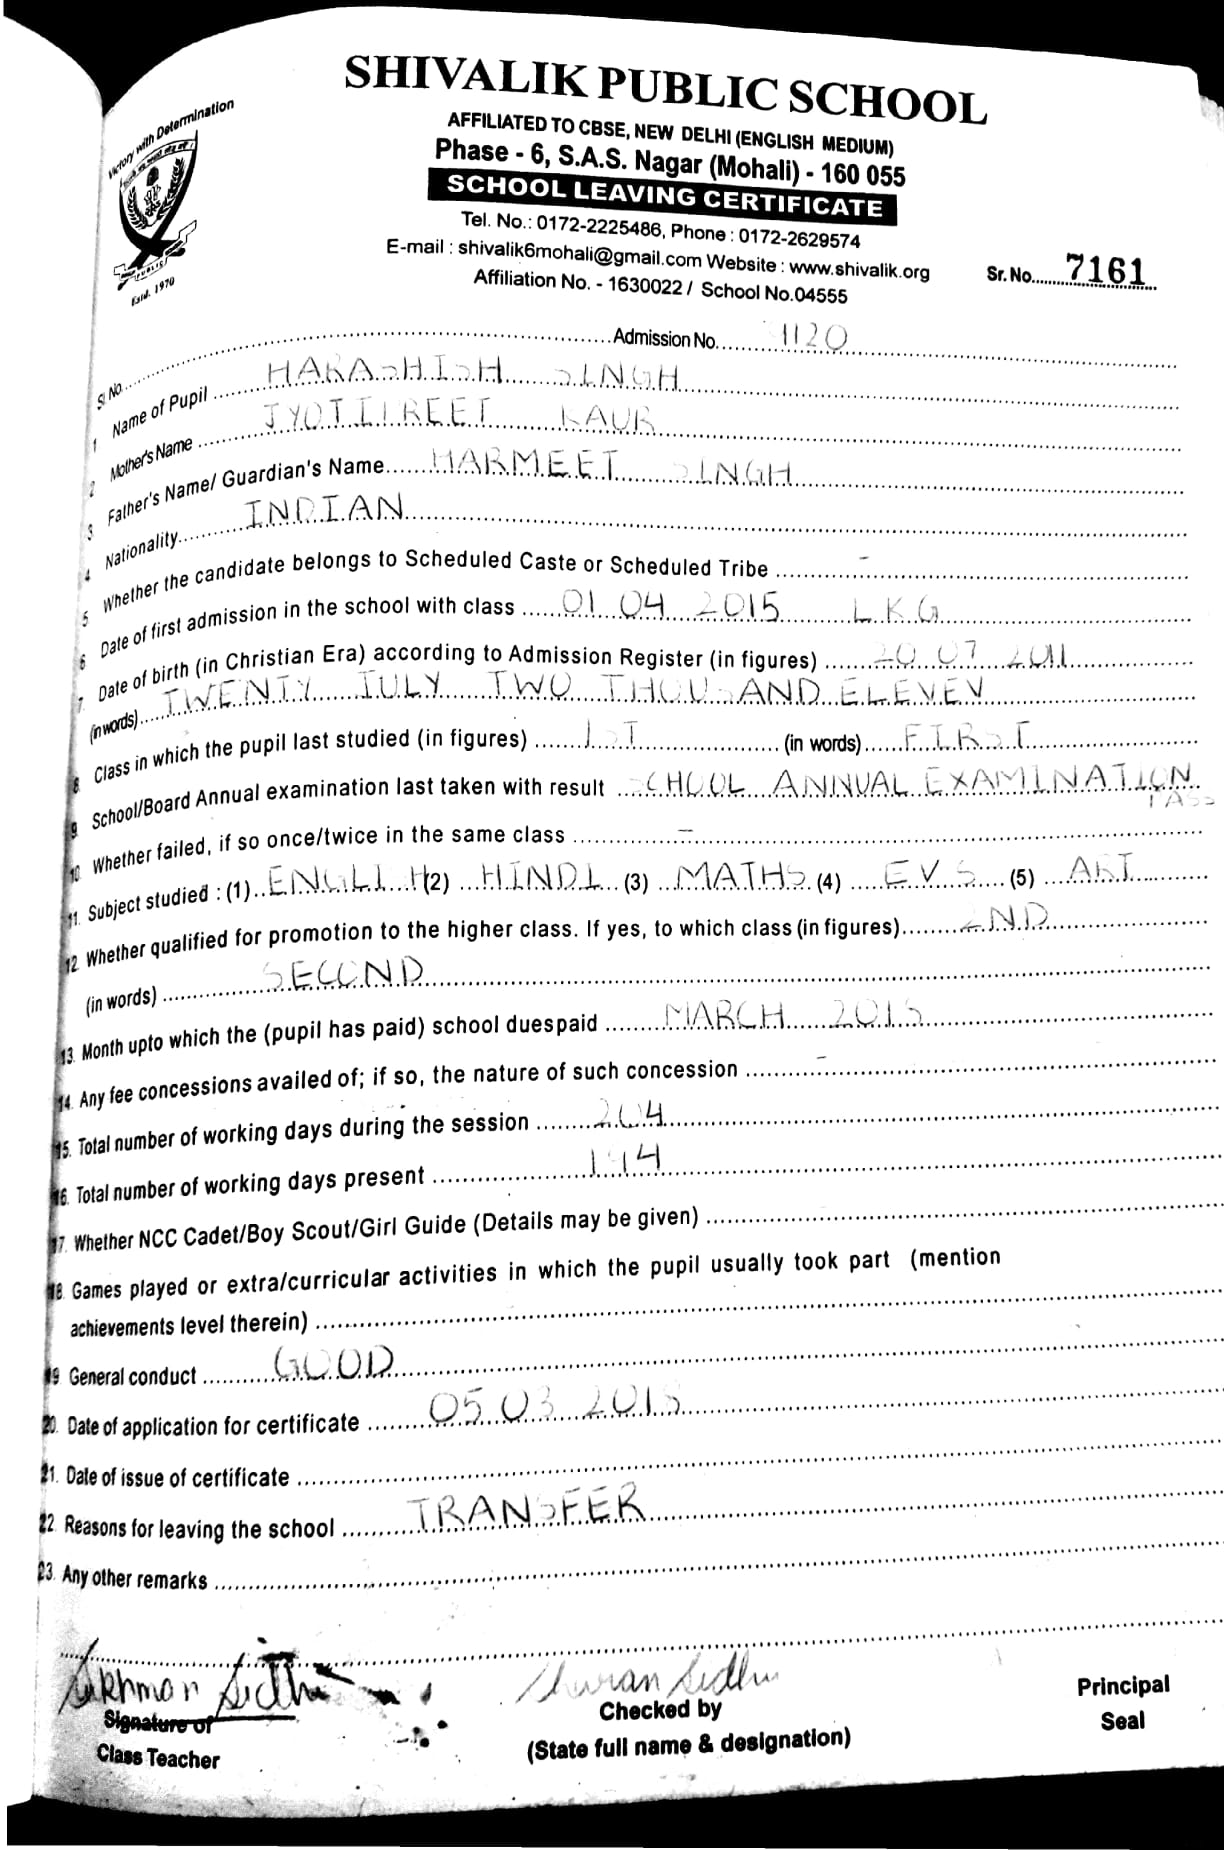 SHIVALIK PUBLIC SCHOOL
AFFILIATED TO CBSE, NEW DELHI (ENGLISH MEDIUM)
Phase - 6, S.A.S. Nagar (Mohali) - 160 055
SCHOOL LEAVING CERTIFICATE
Tel. No.: 0172-2225486, Phone : 0172-2629574
E-mail : shivalik6mohali@gmail.com Website : www.shivalik.org
Affiliation No. - 1630022 / School No.04555
Victory with Determination
PUBLIC
Estd. 1970
Sr. No. 7161
Sl. No. Admission No. 1120
1 Name of Pupil HARASHISH SINGH
2 Mother's Name JYOTIPREET KAUR
3 Father's Name/ Guardian's Name HARMEET SINGH
4 Nationality INDIAN
5 Whether the candidate belongs to Scheduled Caste or Scheduled Tribe -
6 Date of first admission in the school with class 01 04 2015 LKG
7. Date of birth (in Christian Era) according to Admission Register (in figures) 20 07 2011
(in words) TWENTY JULY TWO THOUSAND ELEVEN
8. Class in which the pupil last studied (in figures) 1ST (in words) FIRST
9. School/Board Annual examination last taken with result SCHOOL ANNUAL EXAMINATION
PASS
10. Whether failed, if so once/twice in the same class -
11. Subject studied : (1) ENGLISH (2) HINDI (3) MATHS (4) EVS (5) ART
12. Whether qualified for promotion to the higher class. If yes, to which class (in figures) 2ND
(in words) SECOND
13. Month upto which the (pupil has paid) school duespaid MARCH
14. Any fee concessions availed of; if so, the nature of such concession -
15. Total number of working days during the session 204
16. Total number of working days present 194
17. Whether NCC Cadet/Boy Scout/Girl Guide (Details may be given)
18. Games played or extra/curricular activities in which the pupil usually took part (mention
achievements level therein)
19. General conduct GOOD
20. Date of application for certificate 05 03
21. Date of issue of certificate
22. Reasons for leaving the school TRANSFER
23. Any other remarks
Sukhman Sidhu Sidhu
Signature of Checked by Principal
Class Teacher (State full name & designation) Seal